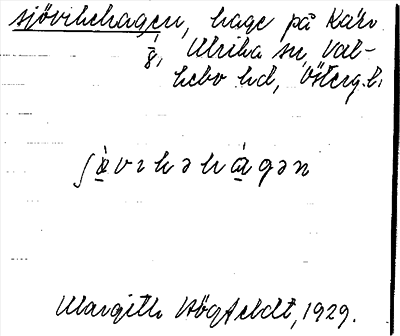 sjövikehagen, hage på Kärr
1/8, Ulrika sn, Val-
kebo hd, Österg.l.
ʃö̀vıkəhágən
Margith Högfeldt, 1929.